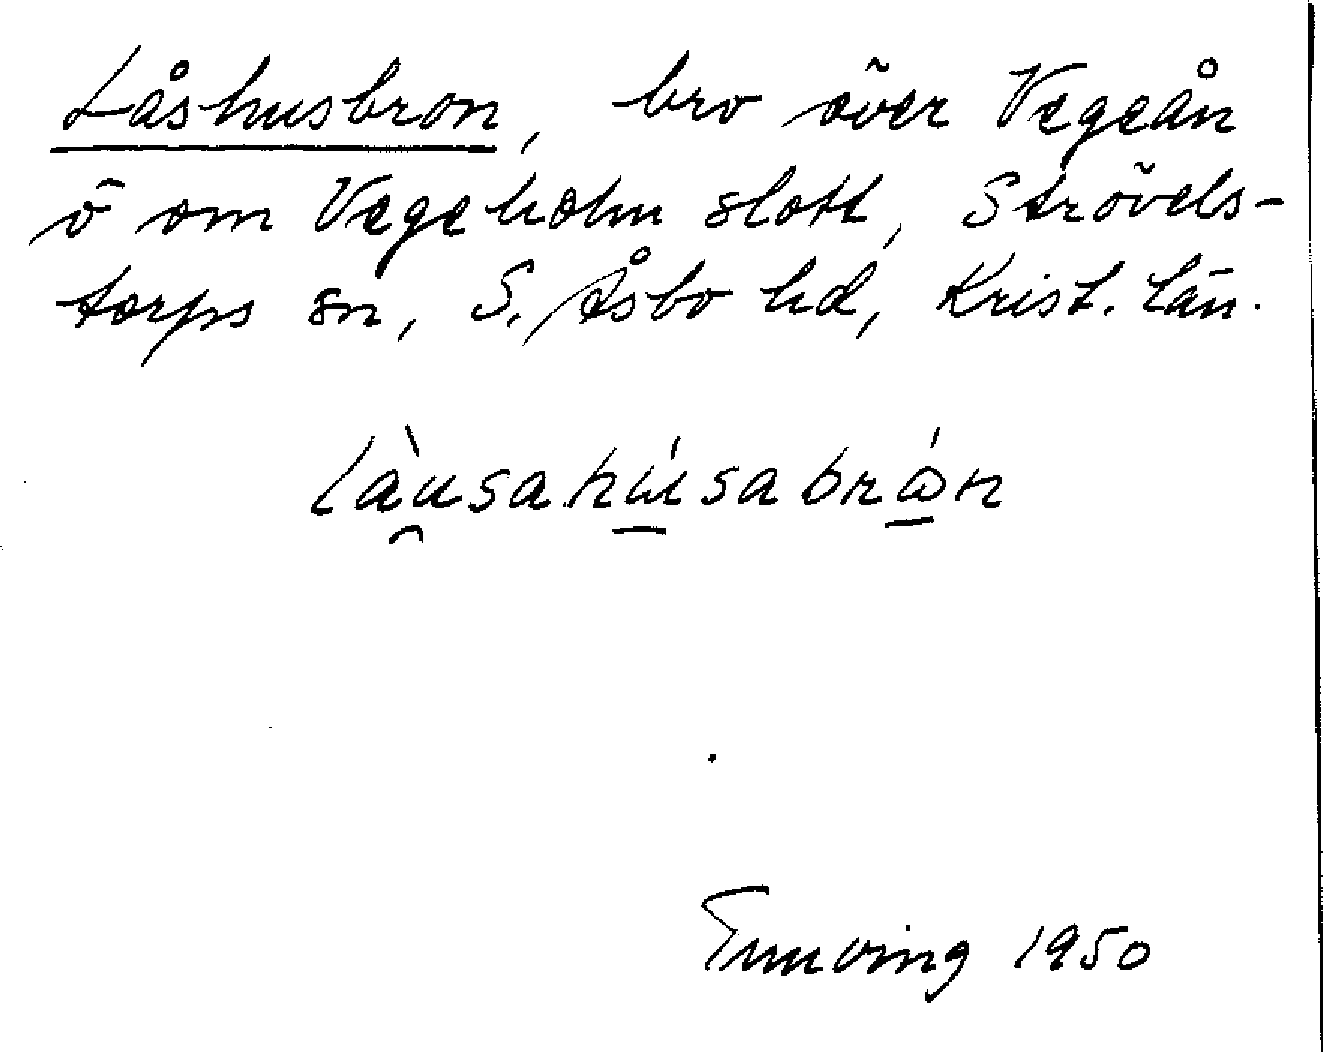 Låshusbron, bro över Vegeån
ö om Vegeholm slott, Strövels-
torps sn, S. Åsbo hd, Krist. län.
làu̯sahú̱sabrώ̱n
Ennving 1950